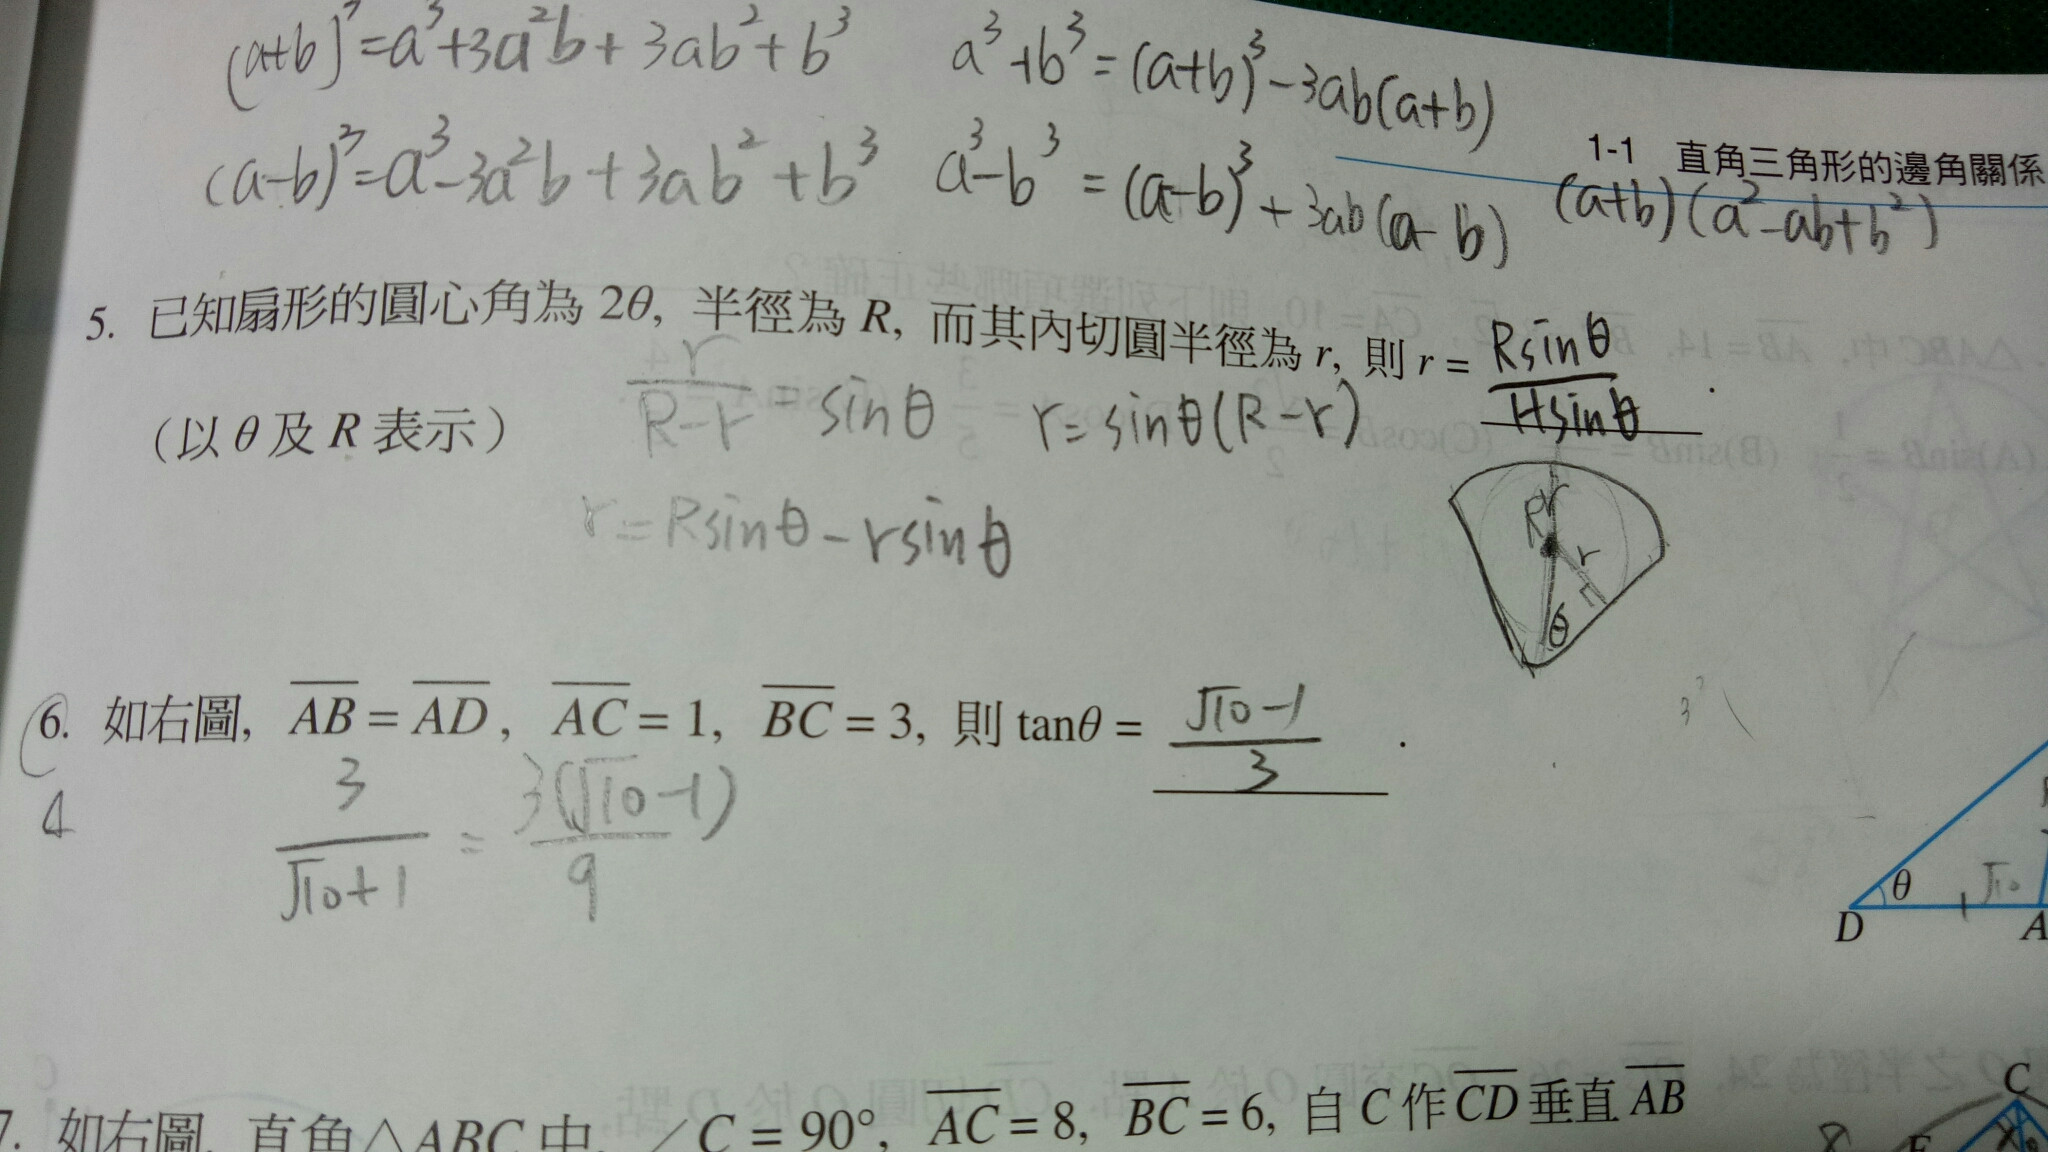 (a+b)³=a³+3a²b+3ab²+b³ a³+b³=(a+b)³-3ab(a+b)
(a-b)³=a³-3a²b+3ab²+b³ a³-b³=(a-b)³+3ab(a-b)
1-1 直角三角形的邊角關係
(a+b)(a²-ab+b²)
5. 已知扇形的圓心角為 2θ, 半徑為 R, 而其內切圓半徑為 r, 則 r = Rsinθ/1+sinθ .
(以 θ 及 R 表示) r/R-r = sinθ r=sinθ(R-r)
r=Rsinθ-rsinθ
R r
r
θ
6. 如右圖, \overline{AB} = \overline{AD}, \overline{AC} = 1, \overline{BC} = 3, 則 tanθ = √10-1/3 .
4
3/√10+1 = 3(√10-1)/9
θ √10
D A
7. 如右圖, 直角△ABC 中, ∠C = 90°, \overline{AC} = 8, \overline{BC} = 6, 自 C 作 \overline{CD} 垂直 \overline{AB}
C
8 E